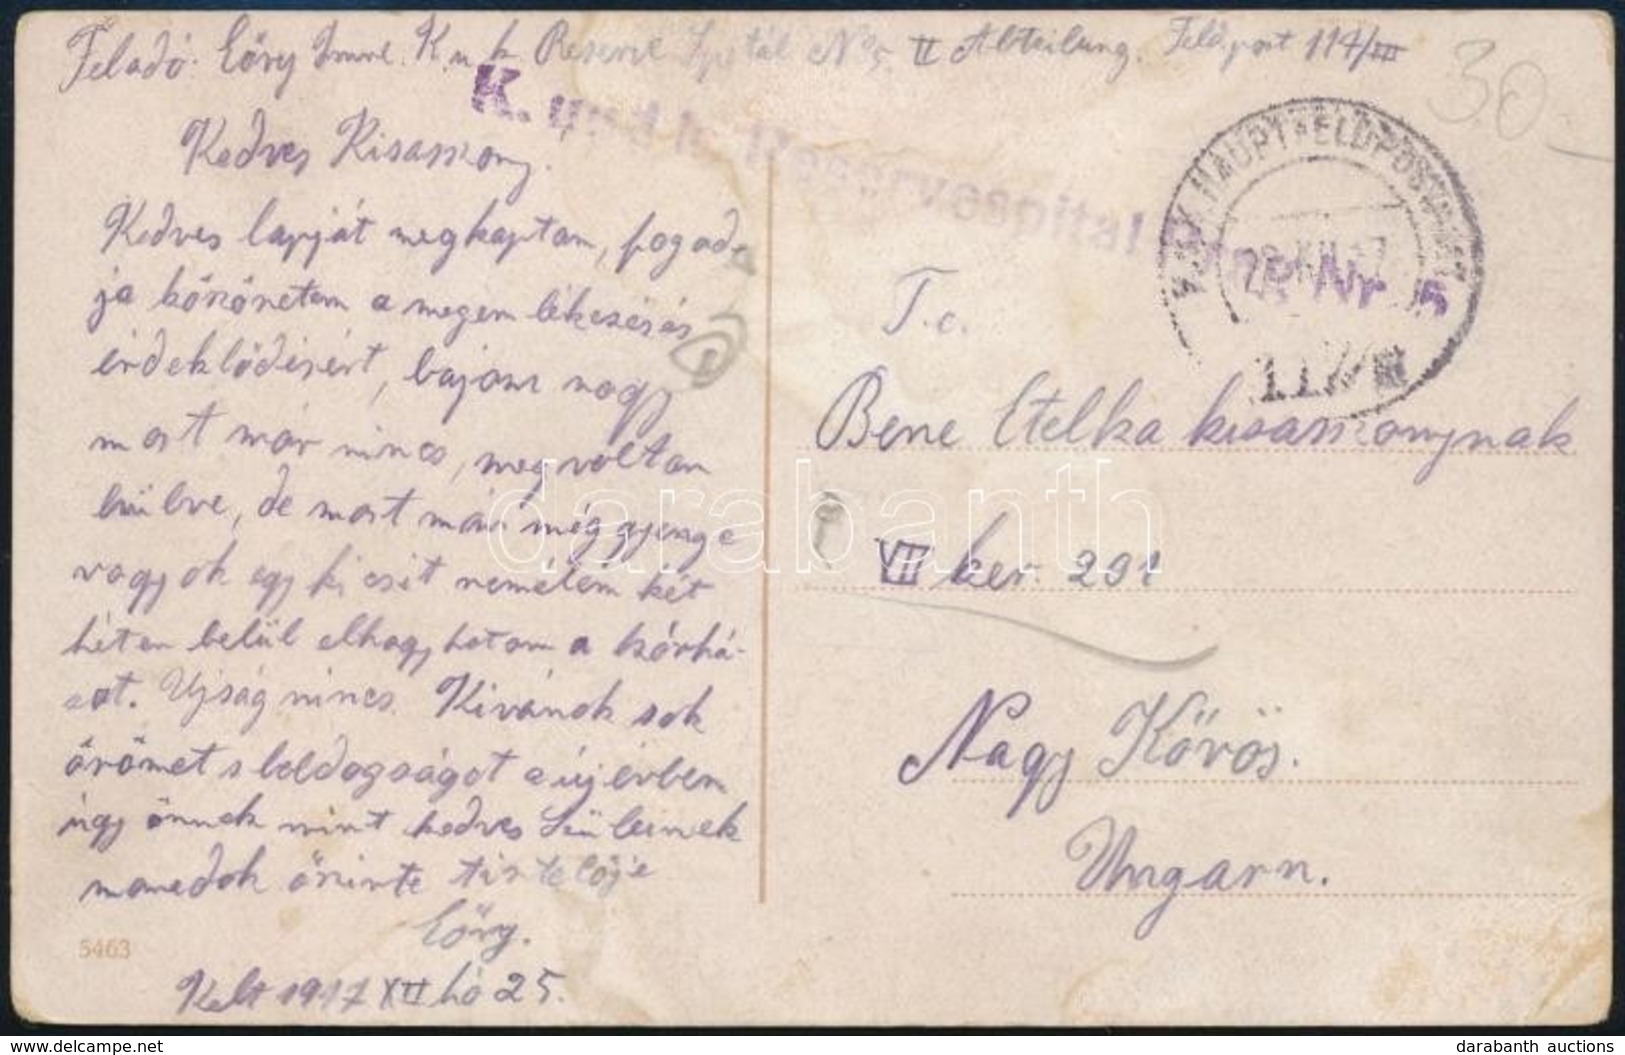 Feladó: Lőrg Imre. K. u. k. Reserve Spitál No 5. II Abteilung. Feldpost 117/III
30
K. und k. Reservespital Nr. 5
K.u.K. HAUPTFELDPOSTAMT
28.XII.17
117/III
Kedves Kisasszony.
Kedves lapját megkaptam, fogad-
ja köszönetem a megem lékezésés
érdeklődésért, bajom nagy
most már nincs, meg voltam
hülve, de most már még gyenge
vagyok egy ki csit remélem két
héten belül elhagyhatom a kórhá-
zat. Ujság nincs. Kivánok sok
örömet s boldogságot a új évben
úgy önnek mint kedves Szüleinek
maradok őszinte tisztelője
Lőrg.
Kelt 1917 XII hó 25.
5463
T. c.
Bene Etelka kisasszonynak
VII ker. 291
Nagy Kőrös.
Ungarn.
darabanth
www.delcampe.net
darabanth auctions